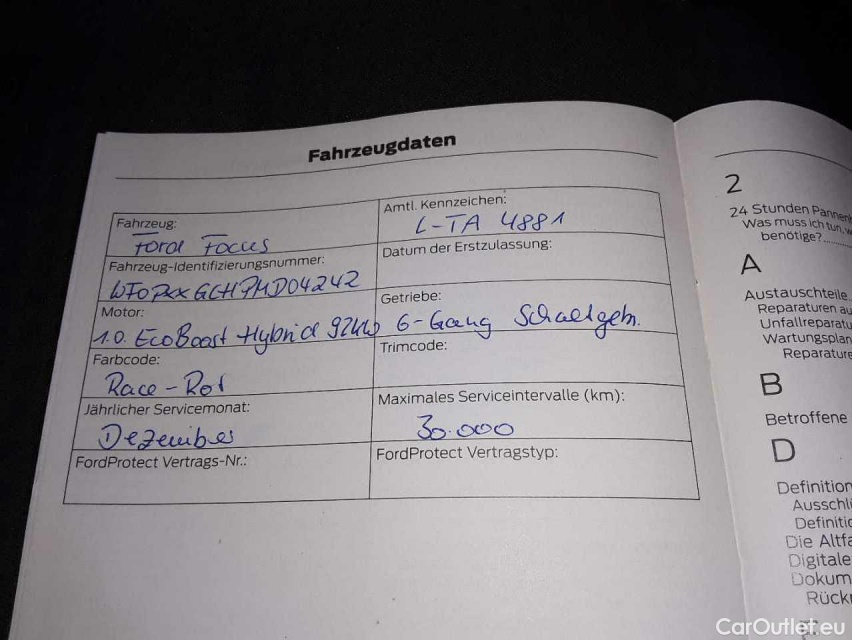 Fahrzeugdaten
Fahrzeug:
Ford Focus
Amtl. Kennzeichen:
L-TA 4881
Fahrzeug-Identifizierungsnummer:
WF0PXXGCHPMD04242
Datum der Erstzulassung:
Motor:
1.0. EcoBoost Hybrid 92kW
Getriebe:
6-Gang Schaltgetr.
Farbcode:
Race-Rot
Trimcode:
Jährlicher Servicemonat:
Dezember
Maximales Serviceintervalle (km):
30.000
FordProtect Vertrags-Nr.:
FordProtect Vertragstyp:
2
24 Stunden Pannen
Was muss ich tun, w
benötige?
A
Austauschteile
Reparaturen au
Unfallreparatu
Wartungsplan
Reparature
B
Betroffene
D
Definition
Ausschl
Definitio
Die Altfa
Digitale
Dokum
Rück
CarOutlet.eu